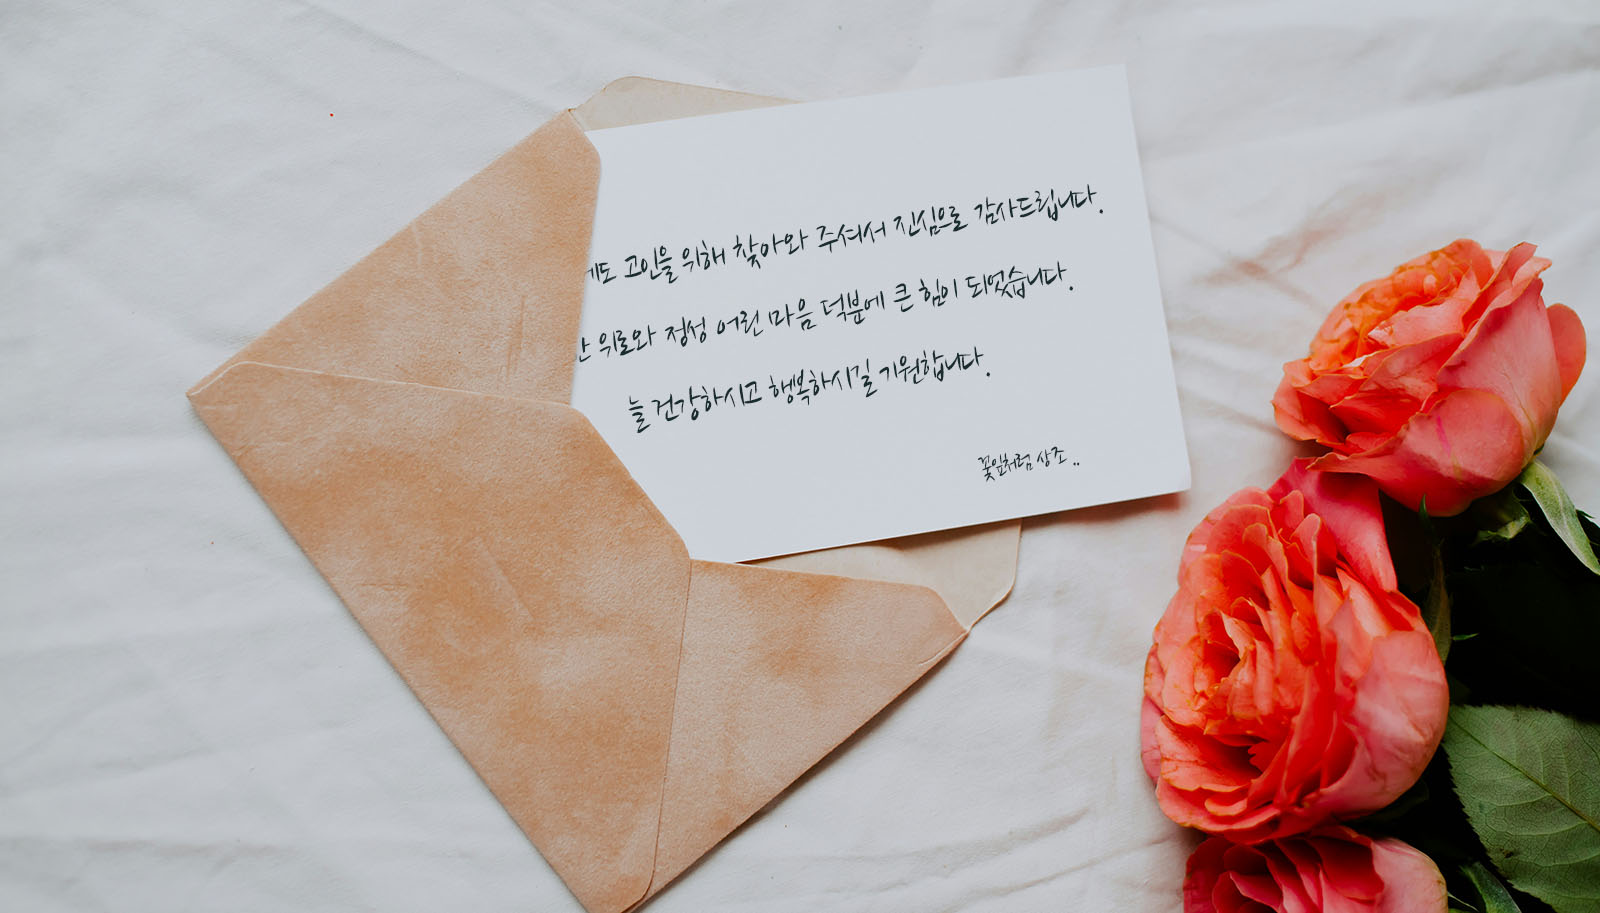 고인을 위해 찾아와 주셔서 진심으로 감사드립니다.
위로와 정성 어린 마음 덕분에 큰 힘이 되었습니다.
늘 건강하시고 행복하시길 기원합니다.
꽃잎처럼 상조..